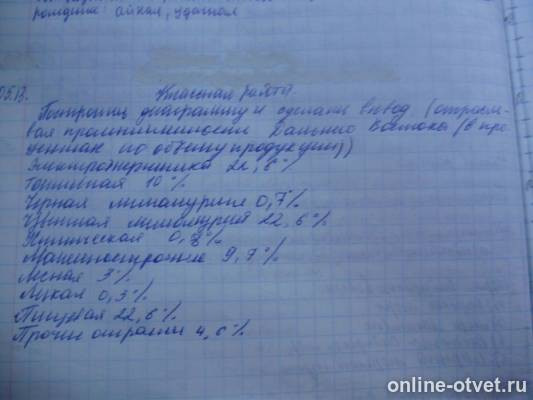 05.13.
Классная работа.
Построить диаграмму и сделать вывод (отрасле-
вая промышленности Дальнего Востока (в про-
центах по объёму продукции))
Электроэнергетика 22,6%
Топливная 10%
Черная металлургия 0,7%
Цветная металлургия 22,6%
Химическая 0,8%
Машиностроение 9,7%
Лесная 3%
Легкая 0,3%
Пищевая 22,6%
Прочие отрасли 4,6%
online-otvet.ru